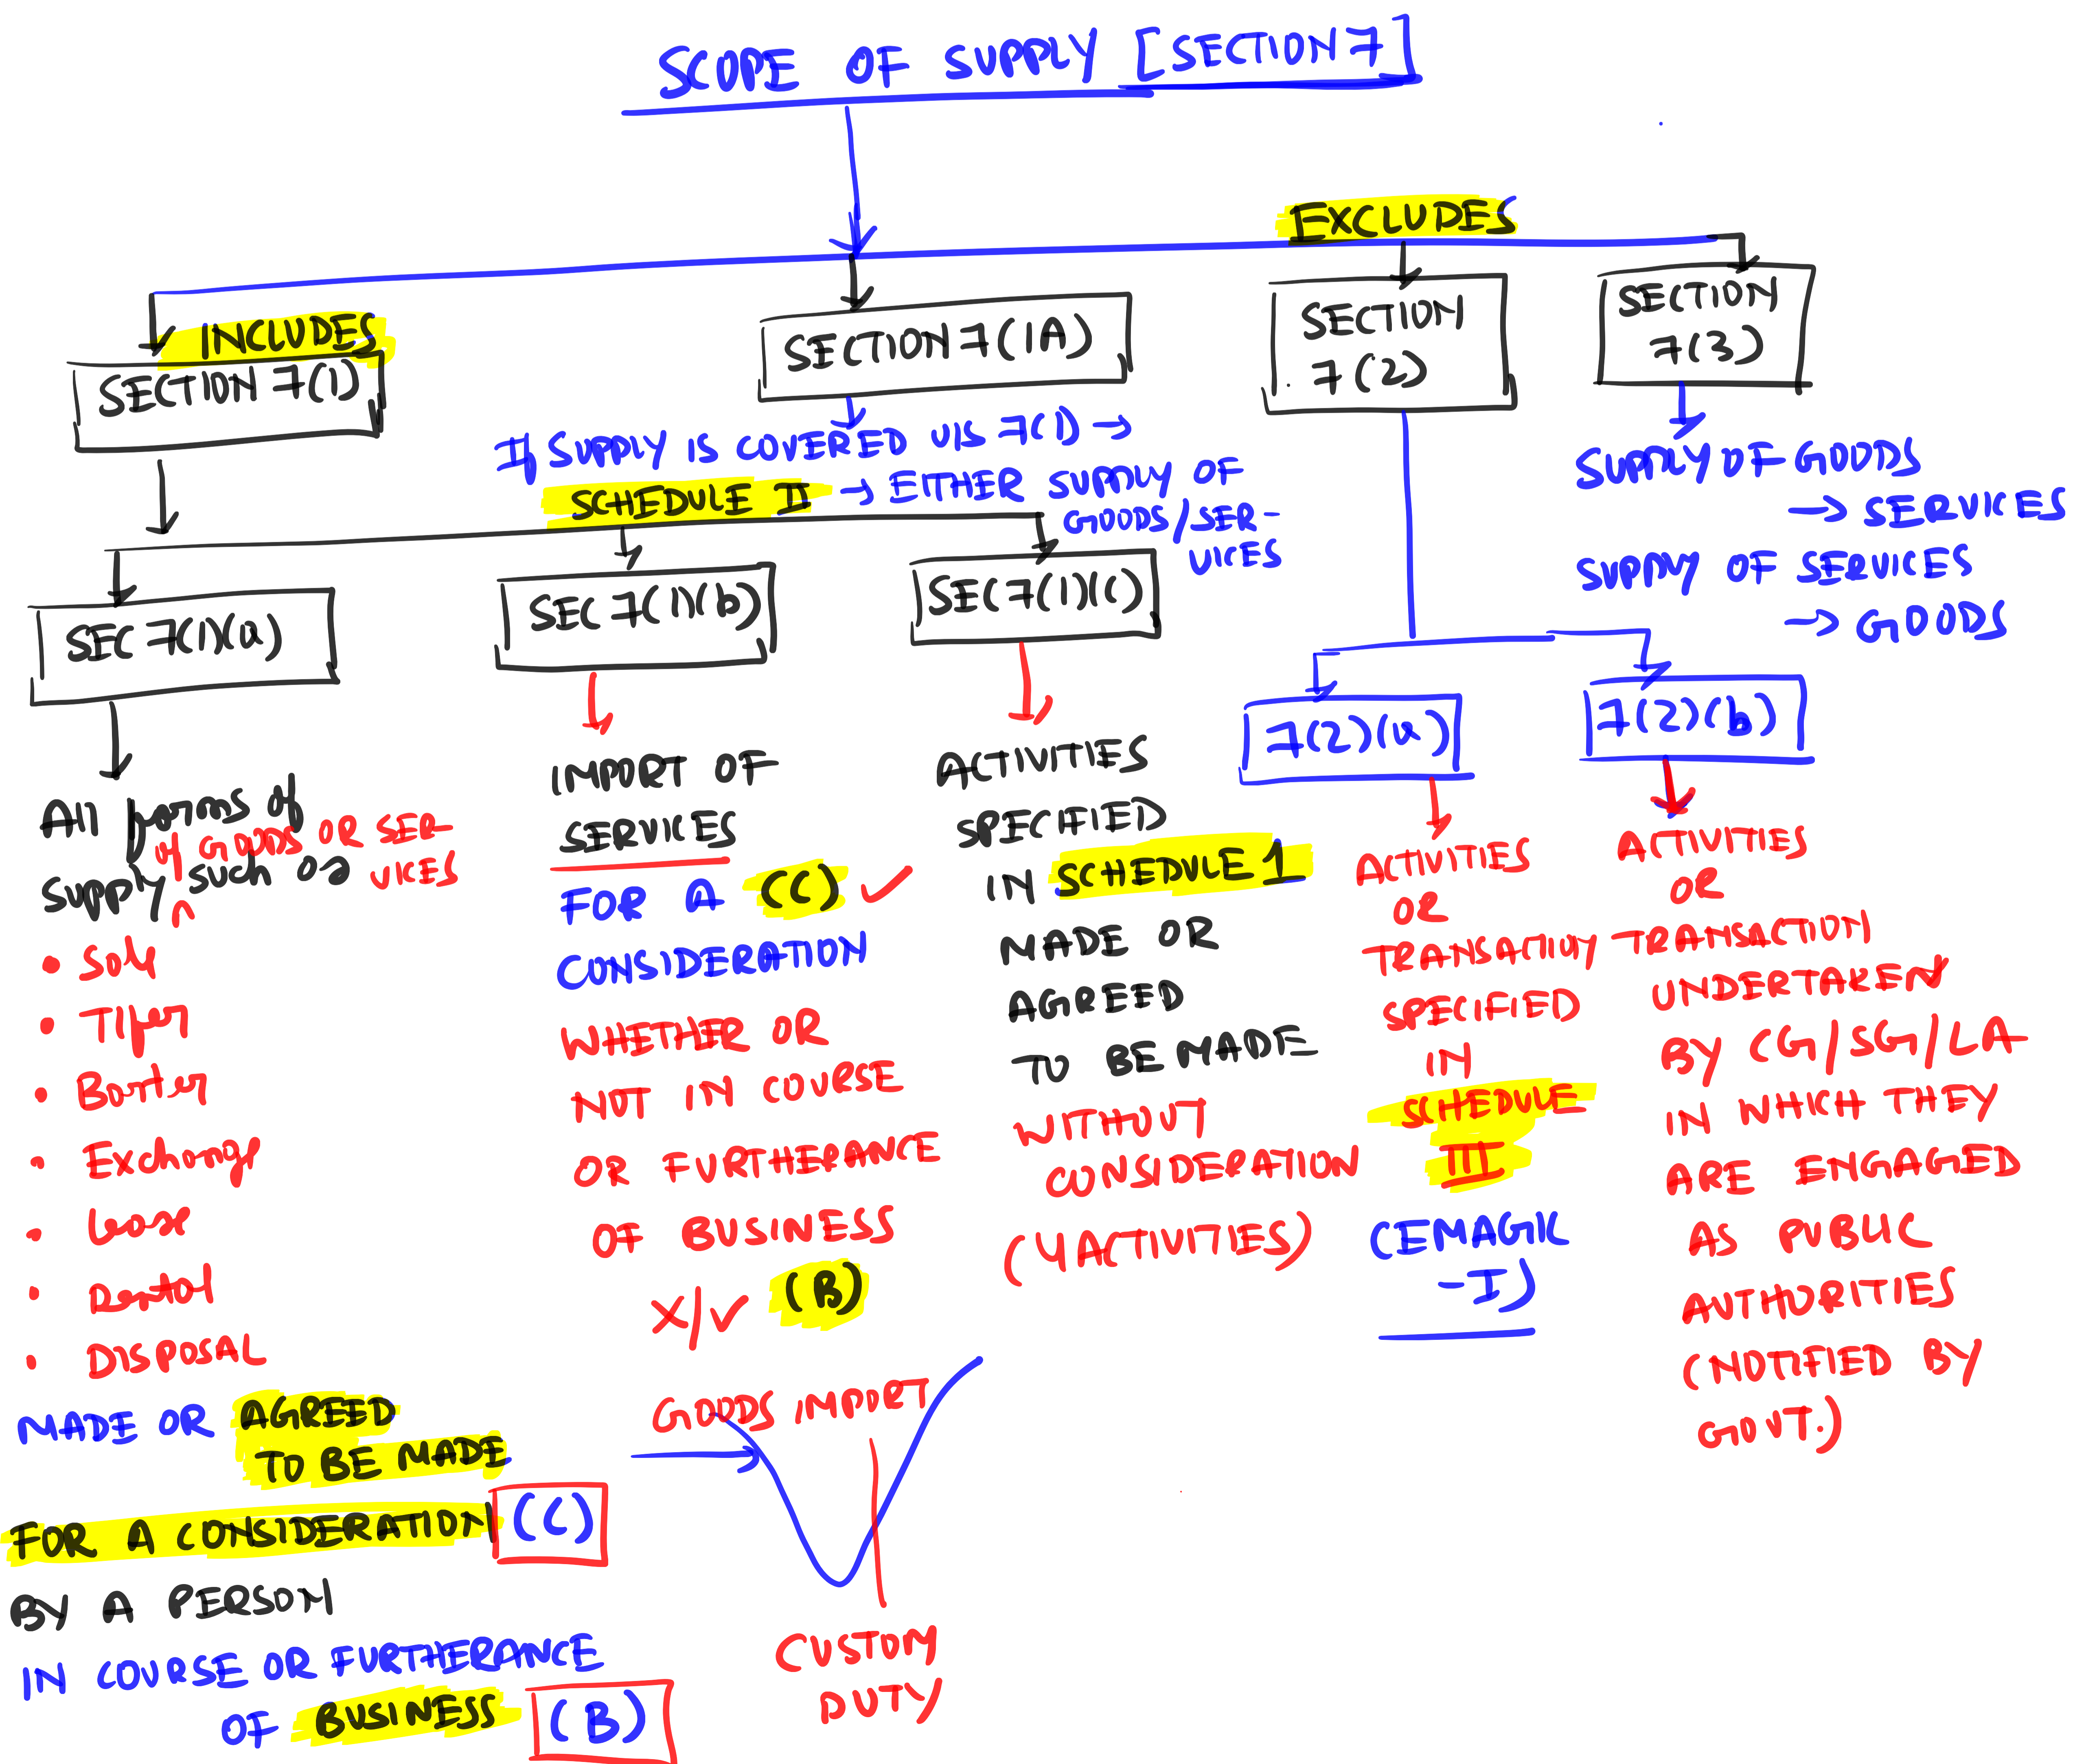 SCOPE OF SUPPLY [SECTION 7]
EXCLUDES
INCLUDES
SECTION 7(1)
SECTION 7(1A)
SECTION
7(2)
SECTION
7(3)
If SUPPLY IS COVERED U/S 7(1) →
SCHEDULE II → EITHER SUPPLY OF
GOODS/SER-
VICES
SUPPLY OF GOODS
→ SERVICES
SUPPLY OF SERVICES
→ GOODS
SEC 7(1)(a)
SEC 7(1)(b)
SEC 7(1)(c)
7(2)(a)
7(2)(b)
All forms of
of GOODS OR SER-
VICES
supply such as
• Sale
• Tfer
• Barter
• Exchange
• Lease
• Rental
• DISPOSAL
MADE OR AGREED
TO BE MADE
FOR A CONSIDERATION (C)
BY A PERSON
IN COURSE OR FURTHERANCE
OF BUSINESS (B)
IMPORT OF
SERVICES
FOR A (C) ✓
CONSIDERATION
WHETHER OR
NOT IN COURSE
OR FURTHERANCE
OF BUSINESS
X/✓ (B)
GOODS IMPORT
CUSTOM
DUTY
ACTIVITIES
SPECIFIED
IN SCHEDULE 1
MADE OR
AGREED
TO BE MADE
WITHOUT
CONSIDERATION
(4 ACTIVITIES)
ACTIVITIES
OR
TRANSACTION
SPECIFIED
IN
SCHEDULE
III
(EMAGIC
-I)
ACTIVITIES
OR
TRANSACTION
UNDERTAKEN
BY CG/SG/LA
IN WHICH THEY
ARE ENGAGED
AS PUBLIC
AUTHORITIES
(NOTIFIED BY
GOVT.)